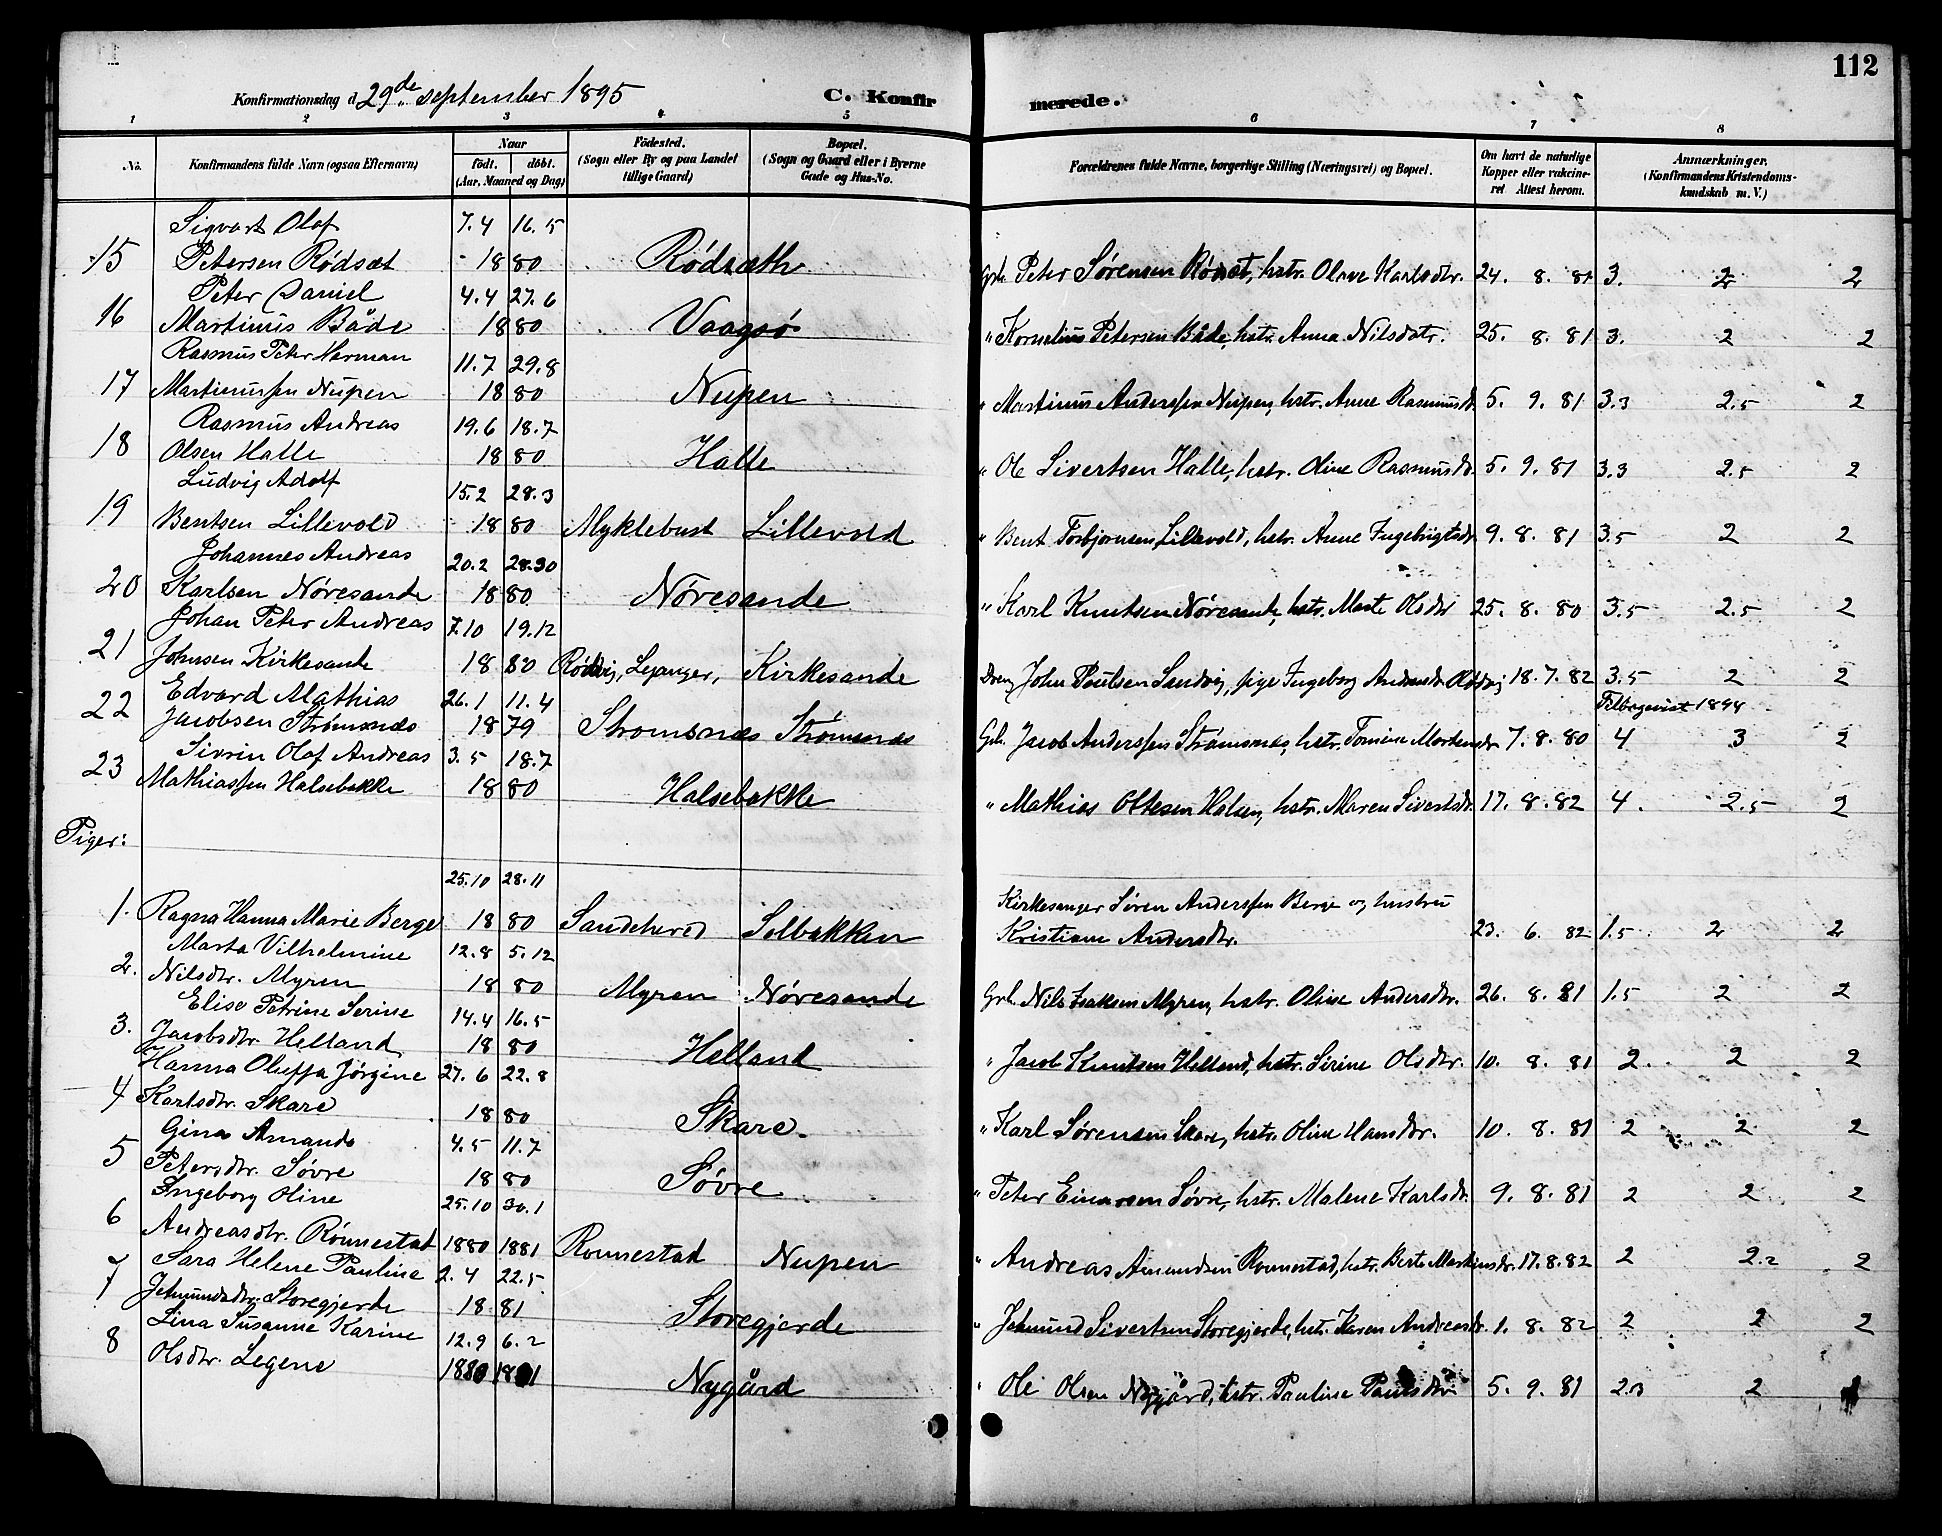 112
Konfirmationsdag d. 29de september 1895 C. Konfirmerede.
1 2 3 4 5 6 7 8
No. Konfirmandens fulde Navn (ogsaa Efternavn) Naar født. døbt. (Aar, Maaned og Dag) Födested. (Sogn eller By og paa Landet tillige Gaard) Bopæl. (Sogn og Gaard eller i Byerne Gade og Hus-No. Forældrenes fulde Navne, borgerlige Stilling (Næringsvei) og Bopæl. Om havt de naturlige Kopper eller vakcineret Attest herom. Anmærkninger. (Konfirmandens Kristendomskundskab m. V.)
Sigvart Olaf 7.4 16.5
15 Petersen Rødsæt 1880 Rødsæth Grb. Peter Sørensen Rødset, hstr. Olave Karlsdtr. 24. 8. 81 3. 2 2
Peter Daniel 4.4 27.6
16 Martinus Både 1880 Vaagsø " Kornelius Petersen Både, hstr. Anna Nilsdatr. 25. 8. 81 3. 2 2
Rasmus Peter Herman 11.7 29.8
17 Martinussen Nupen 1880 Nupen " Martinus Anderssen Nupen, hstr. Anne Rasmusd. 5. 9. 81 3.3 2.5 2
Rasmus Andreas 19.6 18.7
18 Olsen Halle 1880 Halle " Ole Sivertsen Halle, hstr. Oline Rasmusdr. 5. 9. 81 3.3 2.5 2
Ludvig Adolf 15.2 28.3
19 Bentsen Lillevold 1880 Myklebust Lillevold " Bent Torbjørnsen Lillevold, hstr. Anne Ingebrigtsdr. 9. 8. 81 3.5 2 2
Johannes Andreas 20.2 28.30
20 Karlsen Nøresande 1880 Nøresande " Karl Knutsen Nøresande, hstr. Marte Olsdtr 25. 8. 80 3.5 2.5 2
Johan Peter Andreas 7.10 19.12
21 Johnsen Kirkesande 1880 Leganger, Kirkesande John Poulsen Sandvig, pige Ingeborg 18. 7. 82 3.5 2 2
Edvard Mathias 26.1 11.4 1894
22 Jacobsen Strømsnæs 1879 Stromsnæs Strømsnæs Grb. Jacob Anderssen Strømsnæs, hstr. Tomine Mortensdr 7. 8. 80 4 3 2
Sivrin Olaf Andreas 3.5 18.7
23 Mathiassen Halsebakke 1880 Halsebakke " Mathias Ottesen Halsen, hstr. Maren Sivertsdr. 17. 8. 82 4. 2.5 2
Piger:
25.10 28.11 Kirkesanger Søren Anderssen Berge og hustru
1. Ragna Hanna Marie Berge 1880 Sandehered Solbakken Kristiane Andersdtr. 23. 6. 82 1.5 2 2
Marta Vilhelmine 12.8 5.12
2. Nilsdtr. Myren 1880 Myren Nøresande Grb. Nils Isaksen Myren, hstr. Oline Andersdtr. 26. 8. 81 1.5 2 2
Elise Petrine Serine 14.4 16.5
3. Jacobsdtr. Helland 1880 Helland " Jacob Knutsen Helland, hstr. Sirine Olsdtr. 10. 8. 81 2. 2 2
Hanna Oluffa Jørgine 27.6 22.8
4 Karlsdtr. Skare 1880 Skare. " Karl Sørensen Skare, hstr. Oline Hansdtr. 10. 8. 81 2 2 2
Gina Amanda 4.5 11.7
5 Petersdtr. Søvre 1880 Søvre " Peter Einarsen Søvre, hstr. Malene Karlsdr. 9. 8. 81 2 2 2
Ingeborg Oline 25.10 30.1
6 Andreasdtr. Rönnestad 1880 1881 Ronnestad Nupen " Andreas Amundsen Ronnestad, hstr. Berte Martinsdr. 17. 8. 82 2 2.2 2
Sara Helene Pauline 2.4 22.5
7 Jetmundsdtr. Storegjerde 1881 Storegjerde " Jetmund Sivertsen Storegjerde, hstr. Karen Andreasdr. 1. 8. 82 2 2 2
Lina Susanne Karine 12.9 6.2
8 Olsdtr. Legene 1880 1881 Nygård " Ole Olsen Nygjård, hstr. Pauline Paulsdtr 5. 9. 81 2.3 2